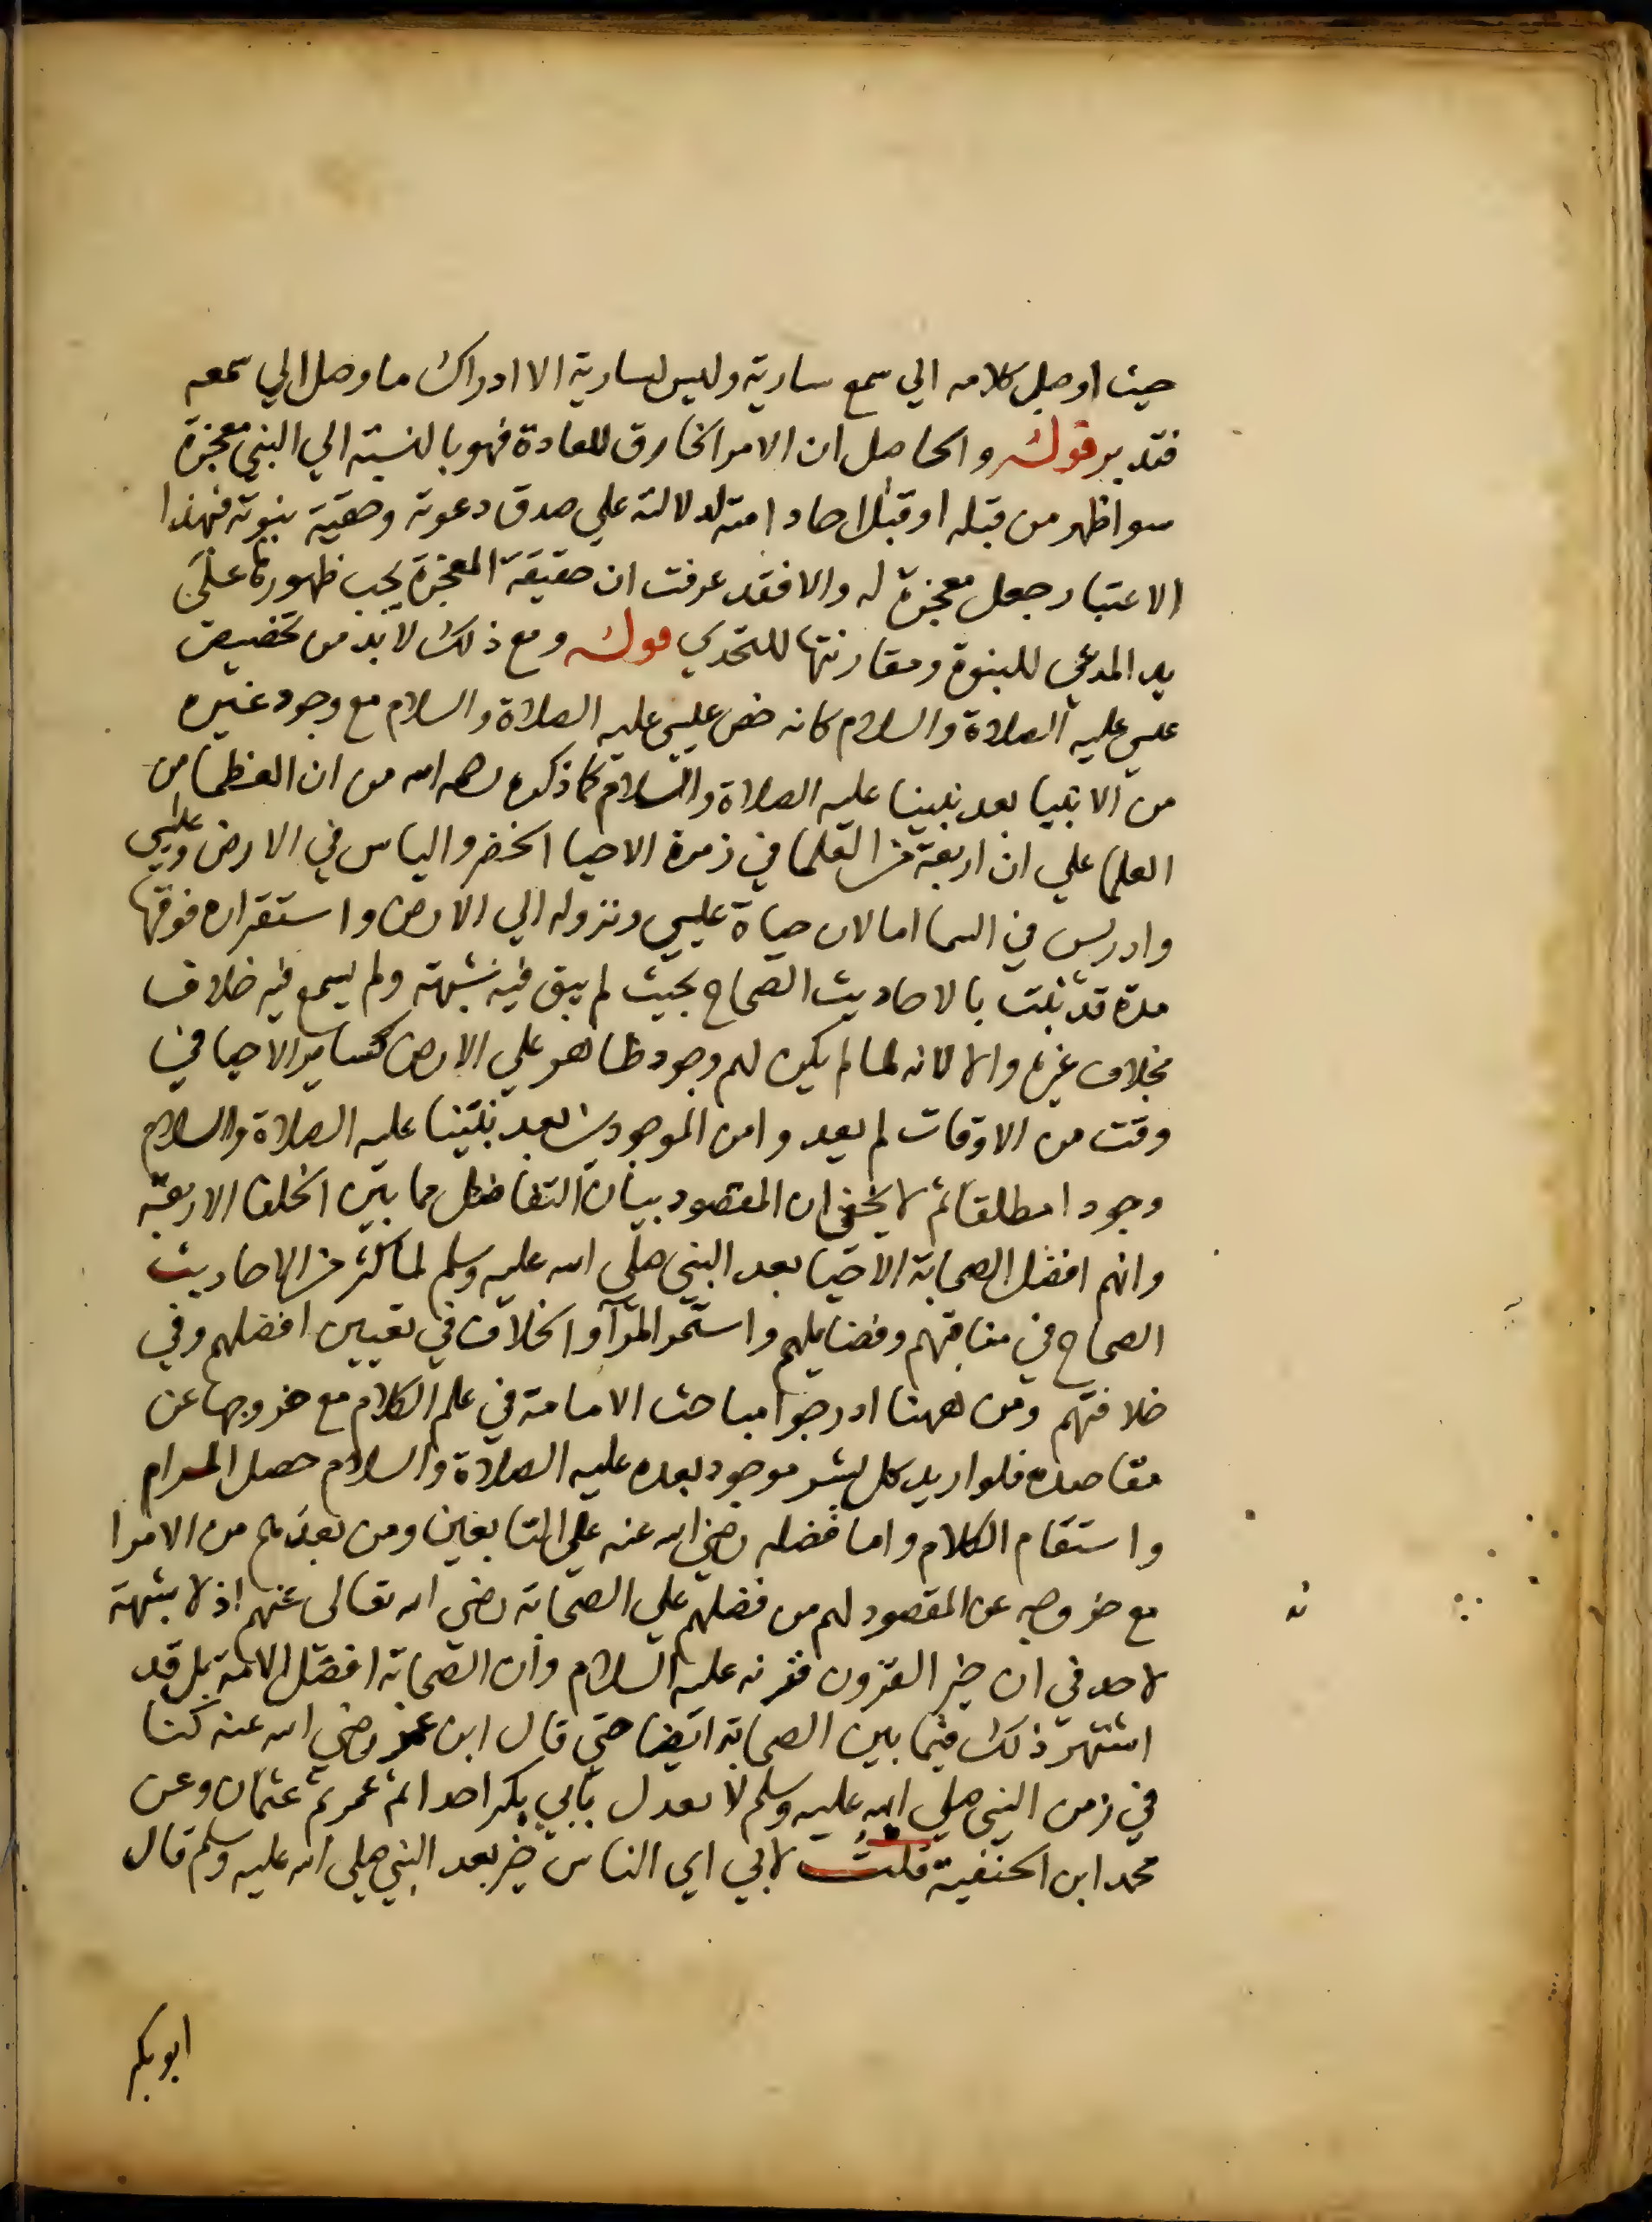 حيث اوصل كلامه الي سمع سارية وليس لسارية الا ادراك ما وصل الي سمعه
فتدبر قوله والحاصل ان الامر الخارق للعادة فهو بالنسبة الي النبي معجزة
سوا ظهر من قبله او قبل احاد امته لدلالته علي صدق دعوته وحقية نبوته فبهذا
الاعتبار جعل معجزة له والا فقد عرفت ان حقيقة المعجزة يجب ظهورها علي
يد المدعي للنبوة ومقارنتها للتحدي قوله ومع ذلك لا بد من تخصيص
عيسي عليه الصلاة والسلام كانه خص عيسي عليه الصلاة والسلام مع وجود غيره
من الانبيا بعد نبينا عليه الصلاة والسلام كما ذكره رحمه الله من ان العظما من
العلما علي ان اربعة من العلما في زمرة الاحيا الخضر والياس في الارض وعيسي
وادريس في السما اما لان حياة عيسي ونزوله الي الارض واستقراره فوقها
مدة قد ثبت بالاحاديث الصحاح بحيث لم يبق فيه شبهة ولم يسمع فيه خلاف
بخلاف غيره والا لانه لما لم يكن لهم وجود ظاهر علي الارض كساير الاحيا في
وقت من الاوقات لم يعدوا من الموجودين بعد نبينا عليه الصلاة والسلام
وجودا مطلقا ثم لا يخفي ان المقصود بيان التفاضل مما بين الخلفا الاربعة
وانهم افضل الصحابة الاحيا بعد النبي صلي الله عليه وسلم لما كثر من الاحاديث
الصحاح في مناقبهم وفضايلهم واستمر المرآ والخلاف في تعيين افضلهم وفي
خلافتهم ومن ههنا ادرجوا مباحث الامامة في علم الكلام مع خروجها عن
مقاصده فلو اريد كل بشر موجود بعده عليه الصلاة والسلام حصل المرام
واستقام الكلام واما فضله رضي الله عنه علي التابعين ومن بعدهم من الامرا
مع خروجه عن المقصود لهم من فضلهم علي الصحابة رضي الله تعالى عنهم اذ لا شبهة
لاحد في ان خير القرون قرنه عليه السلام وان الصحابة افضل الامة بل قد
اشتهر ذلك فيما بين الصحابة ايضا حتي قال ابن عمر رضي الله عنه كنا
في زمن النبي صلي الله عليه وسلم لا نعدل بابي بكر احدا ثم عمر ثم عثمان وعن
محمد ابن الحنفية قلت لابي اي الناس خير بعد النبي صلي الله عليه وسلم قال
ابو بكر